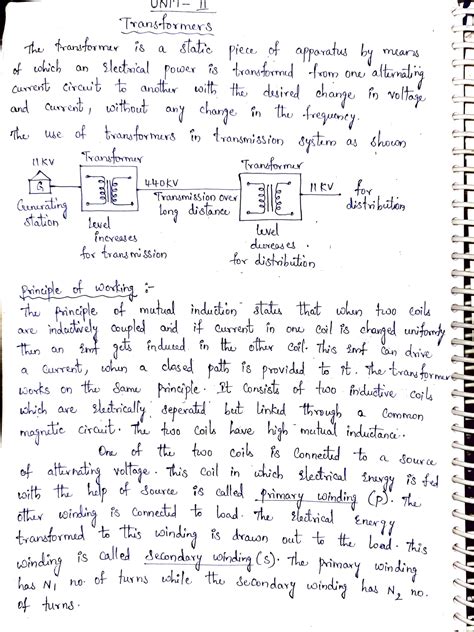 UNIT - II
Transformers
The transformer is a static piece of apparatus by means
of which an Electrical power is transformed from one alternating
current circuit to another with the desired change in voltage
and current, without any change in the frequency.
The use of transformers in transmission system as shown
11KV Transformer Transformer
G 440KV 11 KV for
Generating Transmission over distribution
station long distance
level level
increases decreases
for transmission for distribution
Principle of working :-
The principle of mutual induction states that when two coils
are inductively coupled and if current in one coil is changed uniformly
then an Emf gets induced in the other coil. This Emf can drive
a current, when a closed path is provided to it. The transformer
works on the same principle. It consists of two inductive coils
which are Electrically seperated but linked through a common
magnetic circuit. The two coils have high mutual inductance.
One of the two coils is connected to a source
of alternating voltage. This coil in which Electrical Energy is fed
with the help of source is called primary winding (P). The
other winding is connected to load. The Electrical Energy
transformed to this winding is drawn out to the load. This
winding is called secondary winding (S). The primary winding
has N1 no. of turns while the secondary winding has N2 no.
of turns.